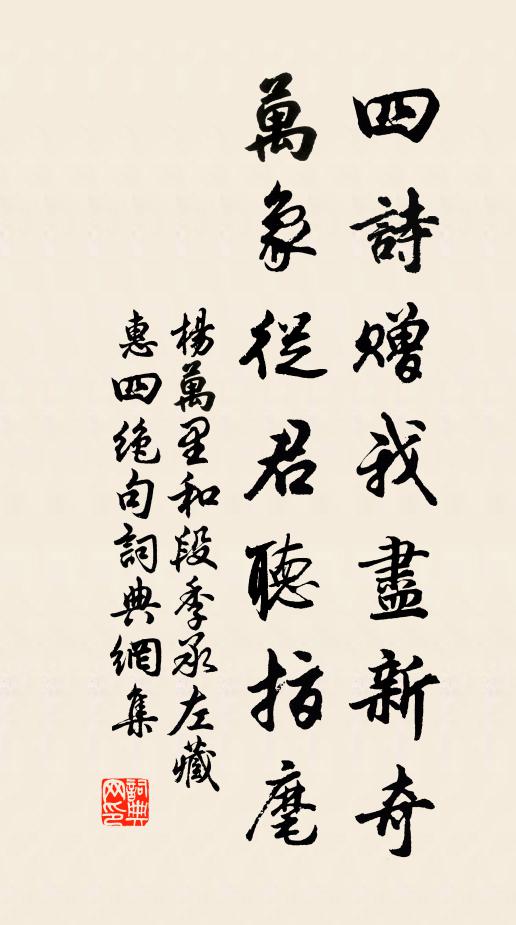 四詩贈我盡新奇
萬象從君聽指麾
楊萬里和段季承左藏
惠四絶句詞典網集
詞典
网印